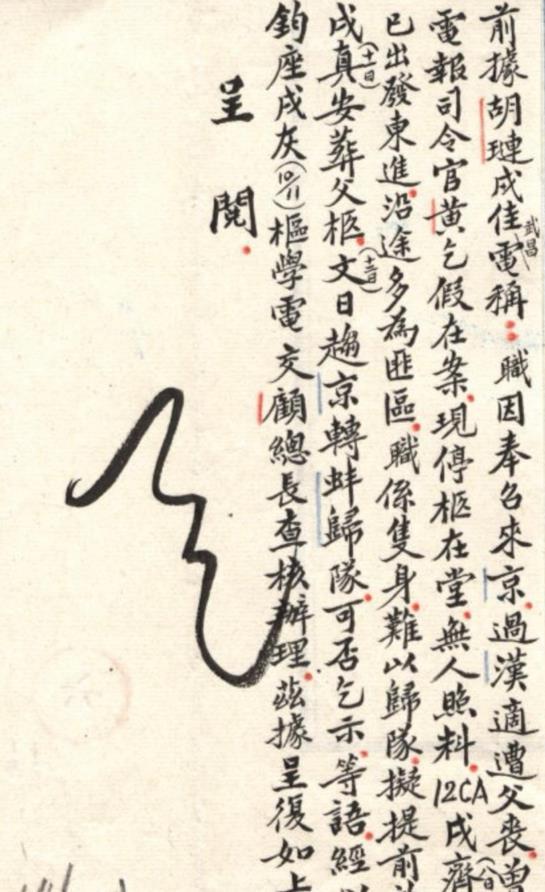 前據胡璉戍佳電稱：職因奉召來京.過漢適遭父喪.曾
武昌
電報司令官黃乞假在案.現停柩在堂.無人照料.12CA戍齊
已出發東進.沿途多為匪區.職係隻身.難以歸隊.擬提前
戍真(十一日)安葬父柩.文(十二日)日趨京轉蚌歸隊.可否乞示.等語.經
鈞座戍灰(10/11)樞學電交顧總長查核辦理.茲據呈復如上
呈閱.